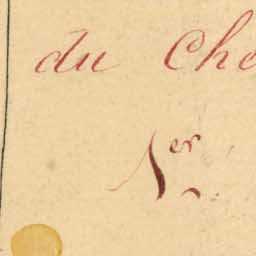 du Che
1er